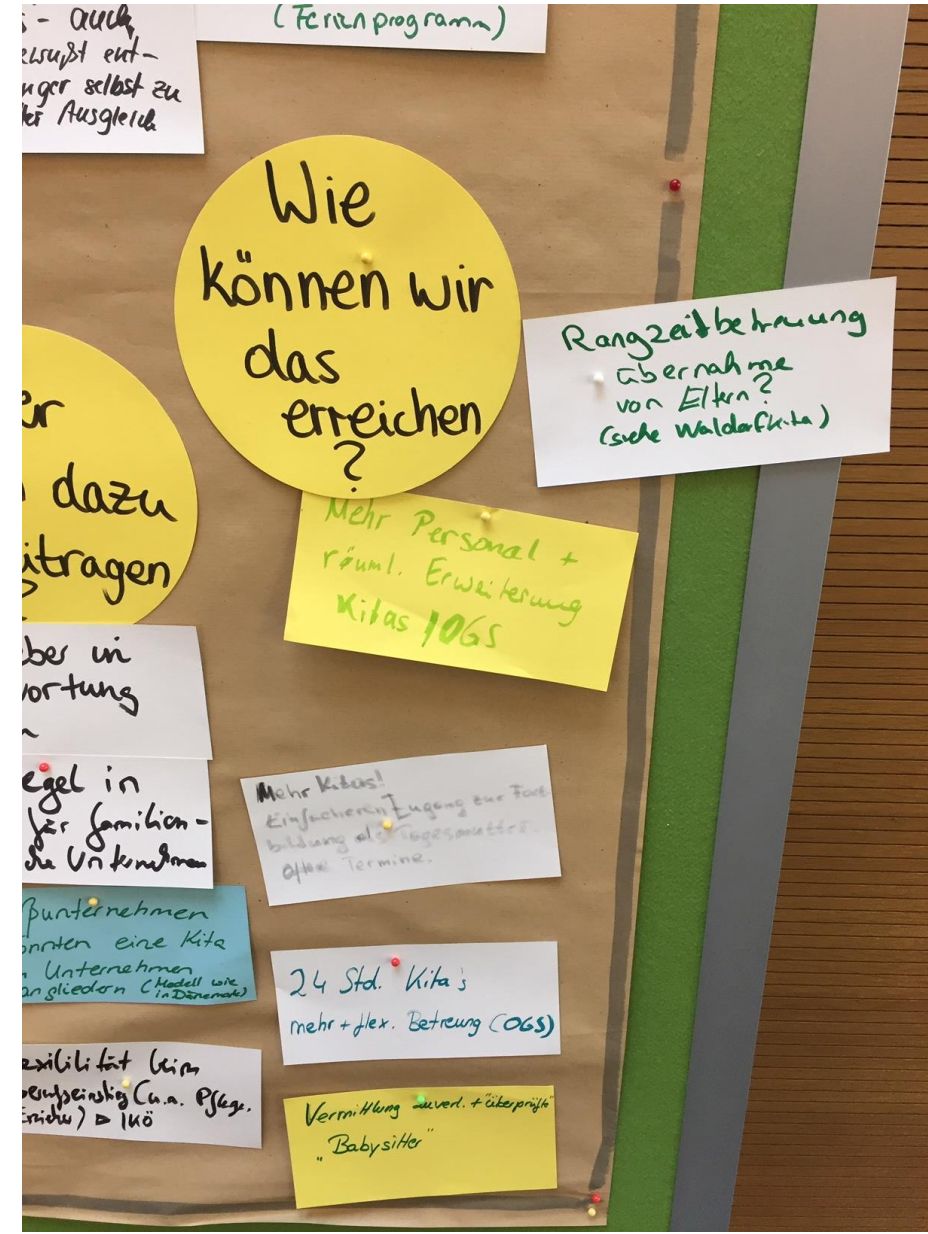 - auch
ewußt ent-
nger selbst zu
Ausgleich
(Ferienprogramm)
Wie
können wir
das
erreichen
?
Rangzeitbetreuung
übernahme
von Eltern?
(siehe Waldorfkita)
er
dazu
itragen
Mehr Personal +
räuml. Erweiterung
Kitas / OGS
ber in
ortung
n
egel in
für familien-
che Unternehmen
Mehr Kitas!
Einfacheren Zugang zur Fort-
bildung als Tagesmutter.
Termine.
ßunternehmen
önnten eine Kita
Unternehmen
angliedern (Modell wie
in Dänemark)
24 Std. Kita's
mehr + flex. Betreung (OGS)
exibilität beim
berufseinstieg (u.a. Pflege,
Erzieher)
Vermittlung zuverl. + "überprüfte"
"Babysitter"